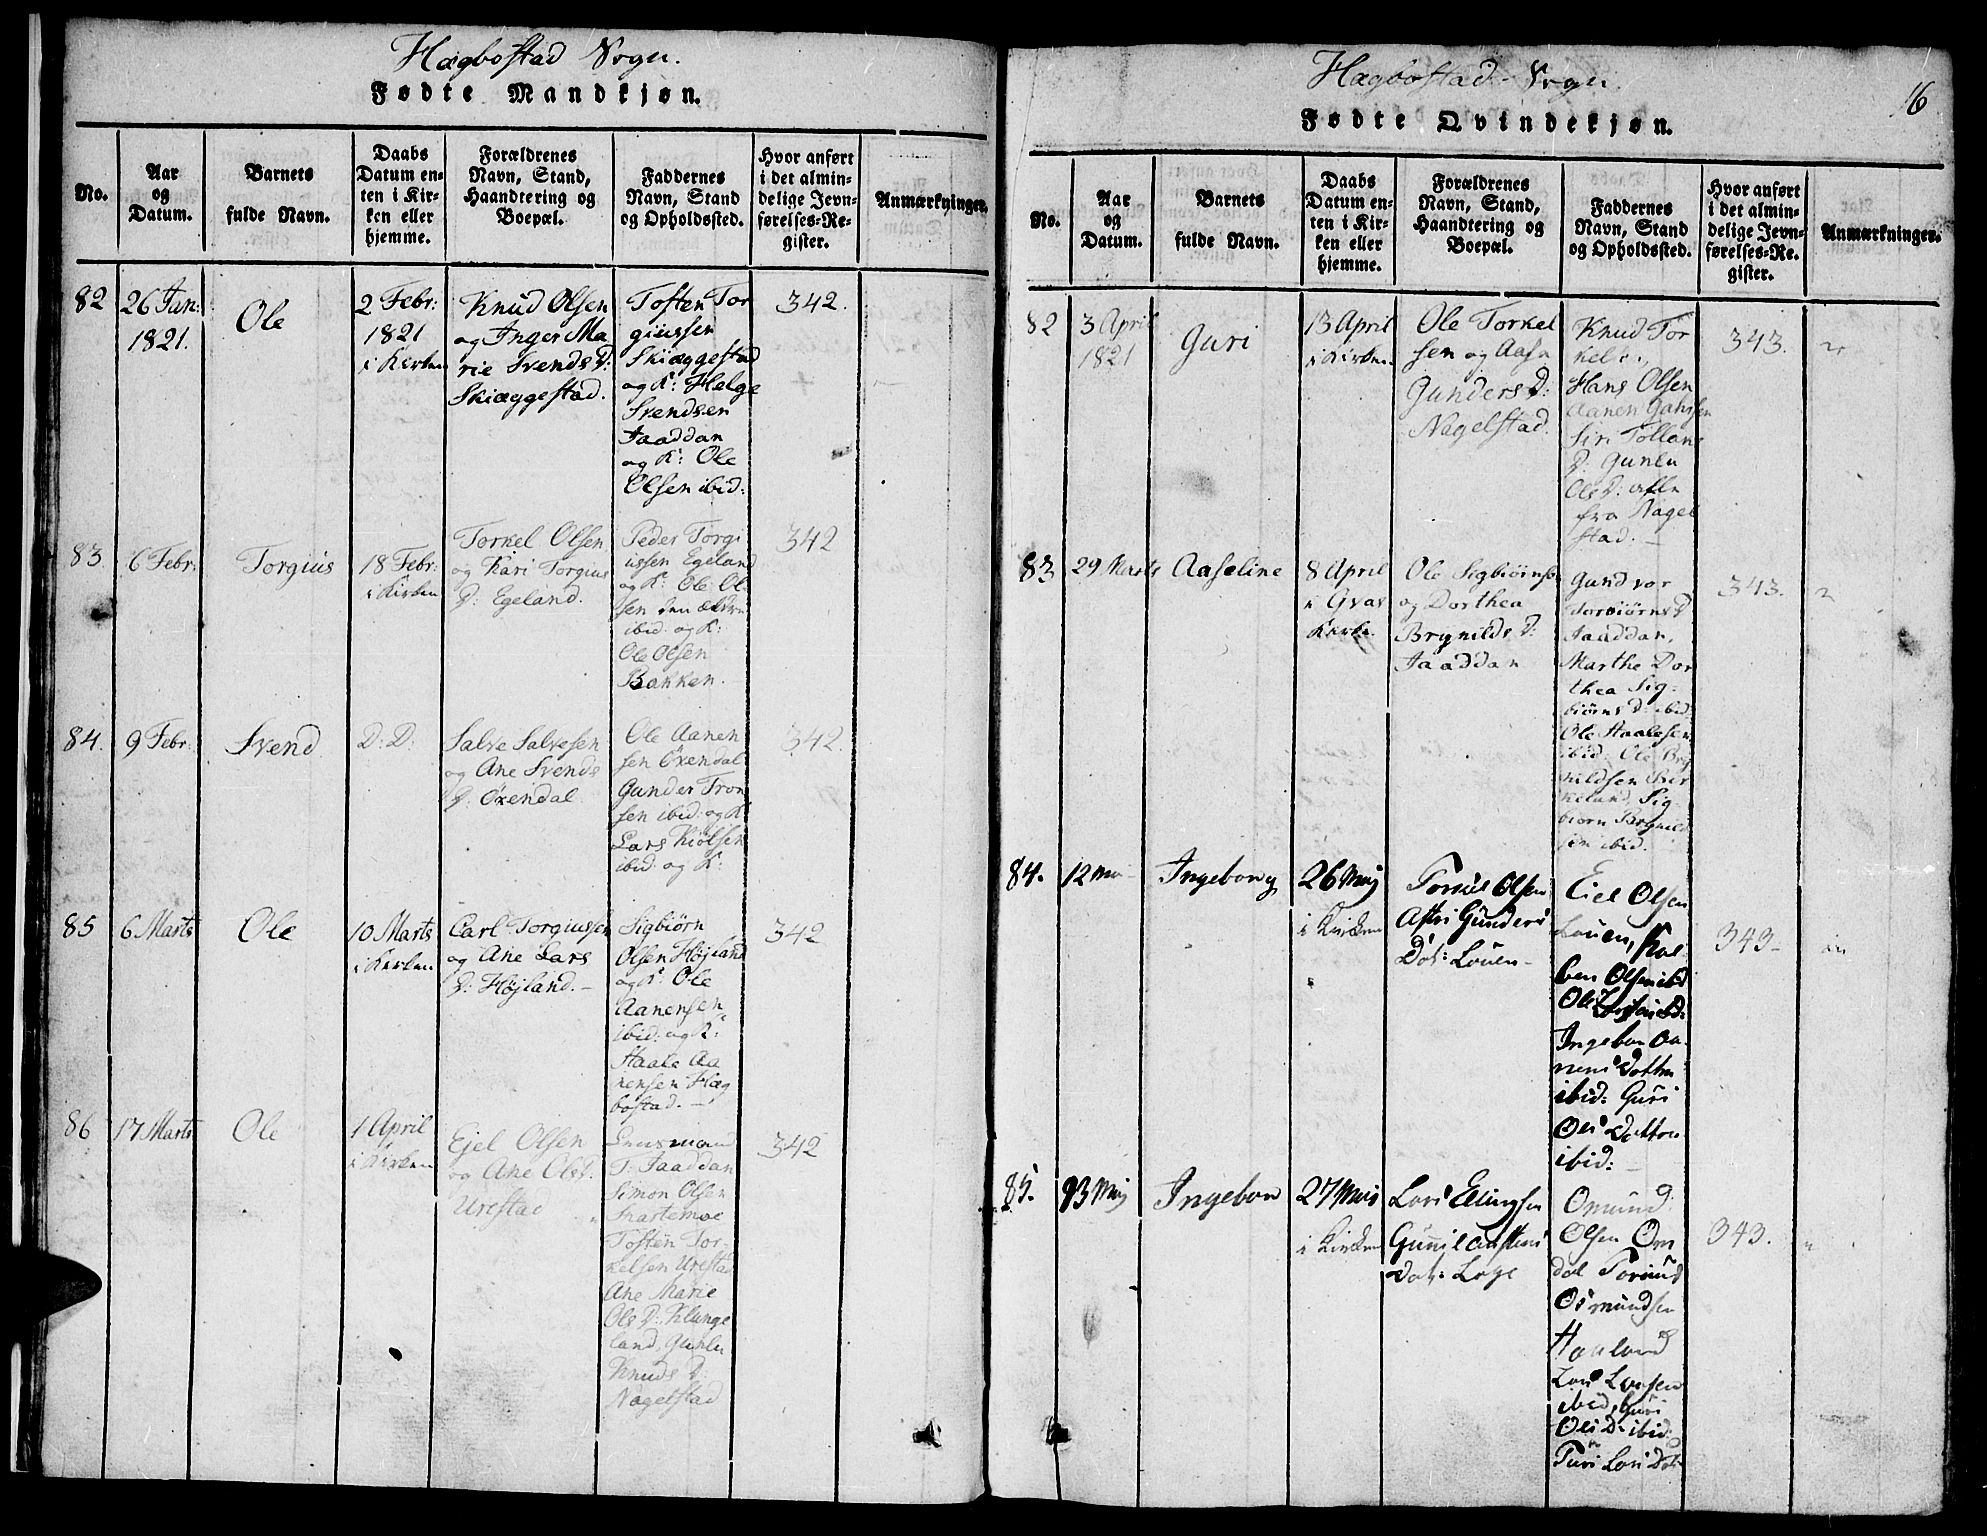 Hægbostad Sogn.
Fødte Mandkjøn.
No.
Aar
og
Datum.
Barnets
fulde Navn.
Daabs
Datum en-
ten i Kir-
ken eller
hjemme.
Forældrenes
Navn, Stand,
Haandtering og
Boepæl.
Faddernes
Navn, Stand
og Opholdssted.
Hvor anført
i det almin-
delige Jevn-
førelses-Re-
gister.
Anmærkninger.
82
26 Jan:
1821.
Ole
2 Febr:
1821
i Kirken
Knud Olsen
og Inger Ma
rie Svends D:
Skiæggestad.
Tosten Tor
giussen
Skiæggestad
og K: Helge
Svendsen
Jaaddan
og K: Ole
Olsen ibid:
342.
83
6 Febr:
Torgius
18 Febr:
i Kirken
Torkel Olsen
og Kari Torgius
D: Egeland.
Peder Torgi
ussen Egeland
og K: Ole Ol-
sen den ældre
ibid. og K:
Ole Olsen
Bakken.
342
84.
9 Febr:
Svend
D: D:
Salve Salvesen
og Ane Svends
D: Øxendal
Ole Aanen
sen Øxendal
Gunder Tron
sen ibid: og K
Lars Kiølsen
ibid: og K:
342.
85
6 Marts
Ole
10 Marts
i Kirken
Carl Torgiussen
og Ane Lars
D: Højland. -
Sigbiørn
Olsen Højland
og K: Ole
Aanensen
ibid: og K:
Staale Aa
nensen Hæg
bostad. -
342
86
17 Marts
Ole
1 April
i Kirken
Ejel Olsen
og Ane Ols D:
Urestad
Lensmand
T: Jaaddan
Simon Olsen
Snartemoe
Tosten Tor-
kelsen Urestad
Ane Marie
Ols D: Klunge
land, Gunlu
Knuds D:
Nagelstad
342
Hægbostad Sogn.
16
Fødte Qvindekjøn.
No.
Aar
og
Datum.
Barnets
fulde Navn.
Daabs
Datum en-
ten i Kir-
ken eller
hjemme.
Forældrenes
Navn, Stand,
Haandtering og
Boepæl.
Faddernes
Navn, Stand
og Opholdssted.
Hvor anført
i det almin-
delige Jevn-
førelses-Re-
gister.
Anmærkninger.
82
3 April
1821
Guri
13 April
i Kirken
Ole Torkel
sen og Aase
Gunders D:
Nagelstad.
Knud Tor
Hans Olsen
Aanen
Siri
D: Gunlu
Ols D: alle
fra Nagel
stad. -
343.
83
29 Marts
Aaseline
8 April
i Qvas
Kirke.
Ole Sigbiørnsen
og Dorthea
Brynilds D:
Jaaddan
Gundvor
Torbiørns D
Jaaddan,
Marthe Dor
thea Sig-
biørns D: ibid:
Ole Staalesen
ibid: Ole Bry
nildsen Bir
keland, Sig
biørn Brynild
sen ibid.
343.
84.
12
Ingeborg
26 Maj
i Kirken
Olsen
Astri Gunders
Dot:
Eiel Olsen
ben Olsen ibid
Ole
Ingebor Aa-
nens Datter
ibid: Guri
Ols Datter
ibid:
343
85.
23 Maj
Ingebor
27
i Kirken
Lars Ellingsen
Dot:
Omund
Olsen Om
dal
Osmundsen
Haaland
Lars Larsen
ibid, Guri
Ols D: ibid:
Turi Lars Dat:
343.